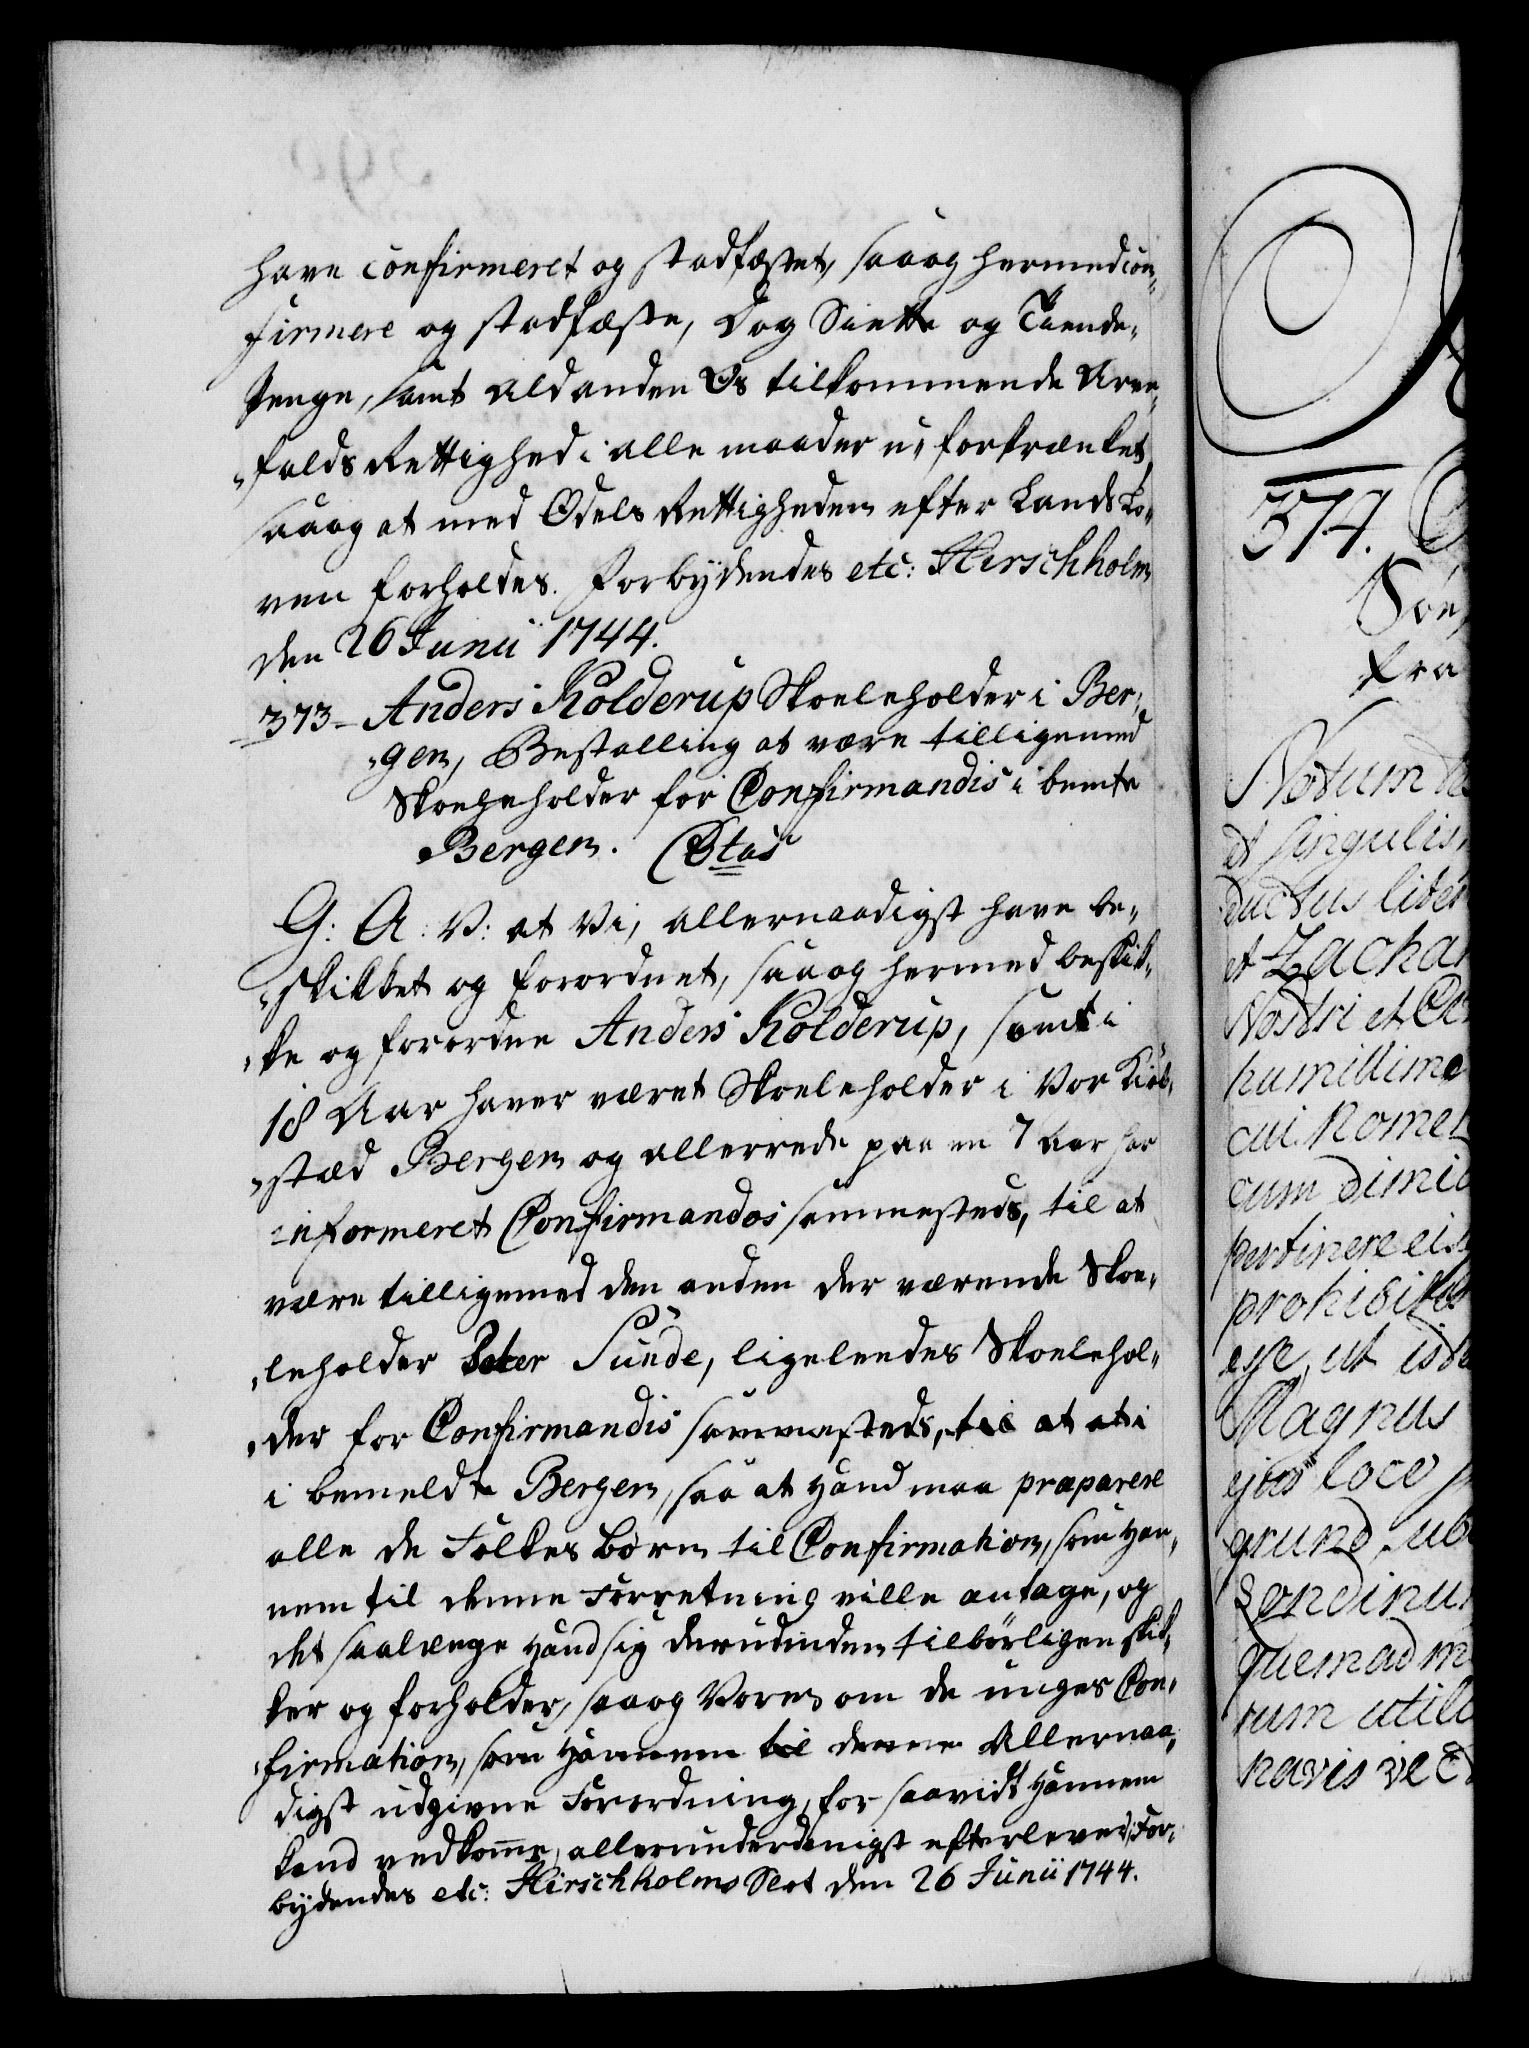 have confirmeret og stadfæstet, saaog hermed con-
firmere og stadfæste, Dog Siette og Tiende-
Penge, samt ald anden Os tilkommende Arve-
falds Rettighed i alle maader u-forkrænket,
saaog at med Odels Rettigheden efter Lands Lo-
ven forholdes. Forbÿdendes etc: Hirschholm
den 26 Junii 1744.
373- Anders Kolderup Skoeleholder i Ber-
gen, Bestalling at være tilligemed
Skoeleholder for Confirmandis i bemte
Bergen.
G: A: V: at Vi, allernaadigst have be-
skikket og forordnet, saaog hermed beskik-
ke og forordne Anders Kolderup, som i
18 Aar haver været Skoeleholder i Vor Kiøb-
stæd Bergen og allerrede paa en 7 Aar har
informeret Confirmandos sammesteds, til at
være tilligemed den anden der værende Skoe-
leholder Peter Sunde, ligeleedes Skoelehol-
der for Confirmandis sammesteds,
i bemeldte Bergen, saa at Hand maa præparere
alle de Folkes Børn til Confirmation, som Han-
nem til denne Forretning ville antage, og
det saalænge Hand sig derudinden tilbörligen skik-
ker og forholder, saaog Vores om de unges Con-
firmation, Allernaa-
digst udgivne Forordning, for saavidt Hannem
kand vedkome, allerunderdanigst efterlever. For-
bÿdendes etc: Hirschholms Slot den 26 Junii 1744.
374.
fra
Notum
et singulis
ductus
et Zacha
Nostri et
humillime
cui nomen
cum dimi
pertinere
prohibit
esse, ut
Magnus
ejus loco
grund, ub
quemadm
rum utili
navis